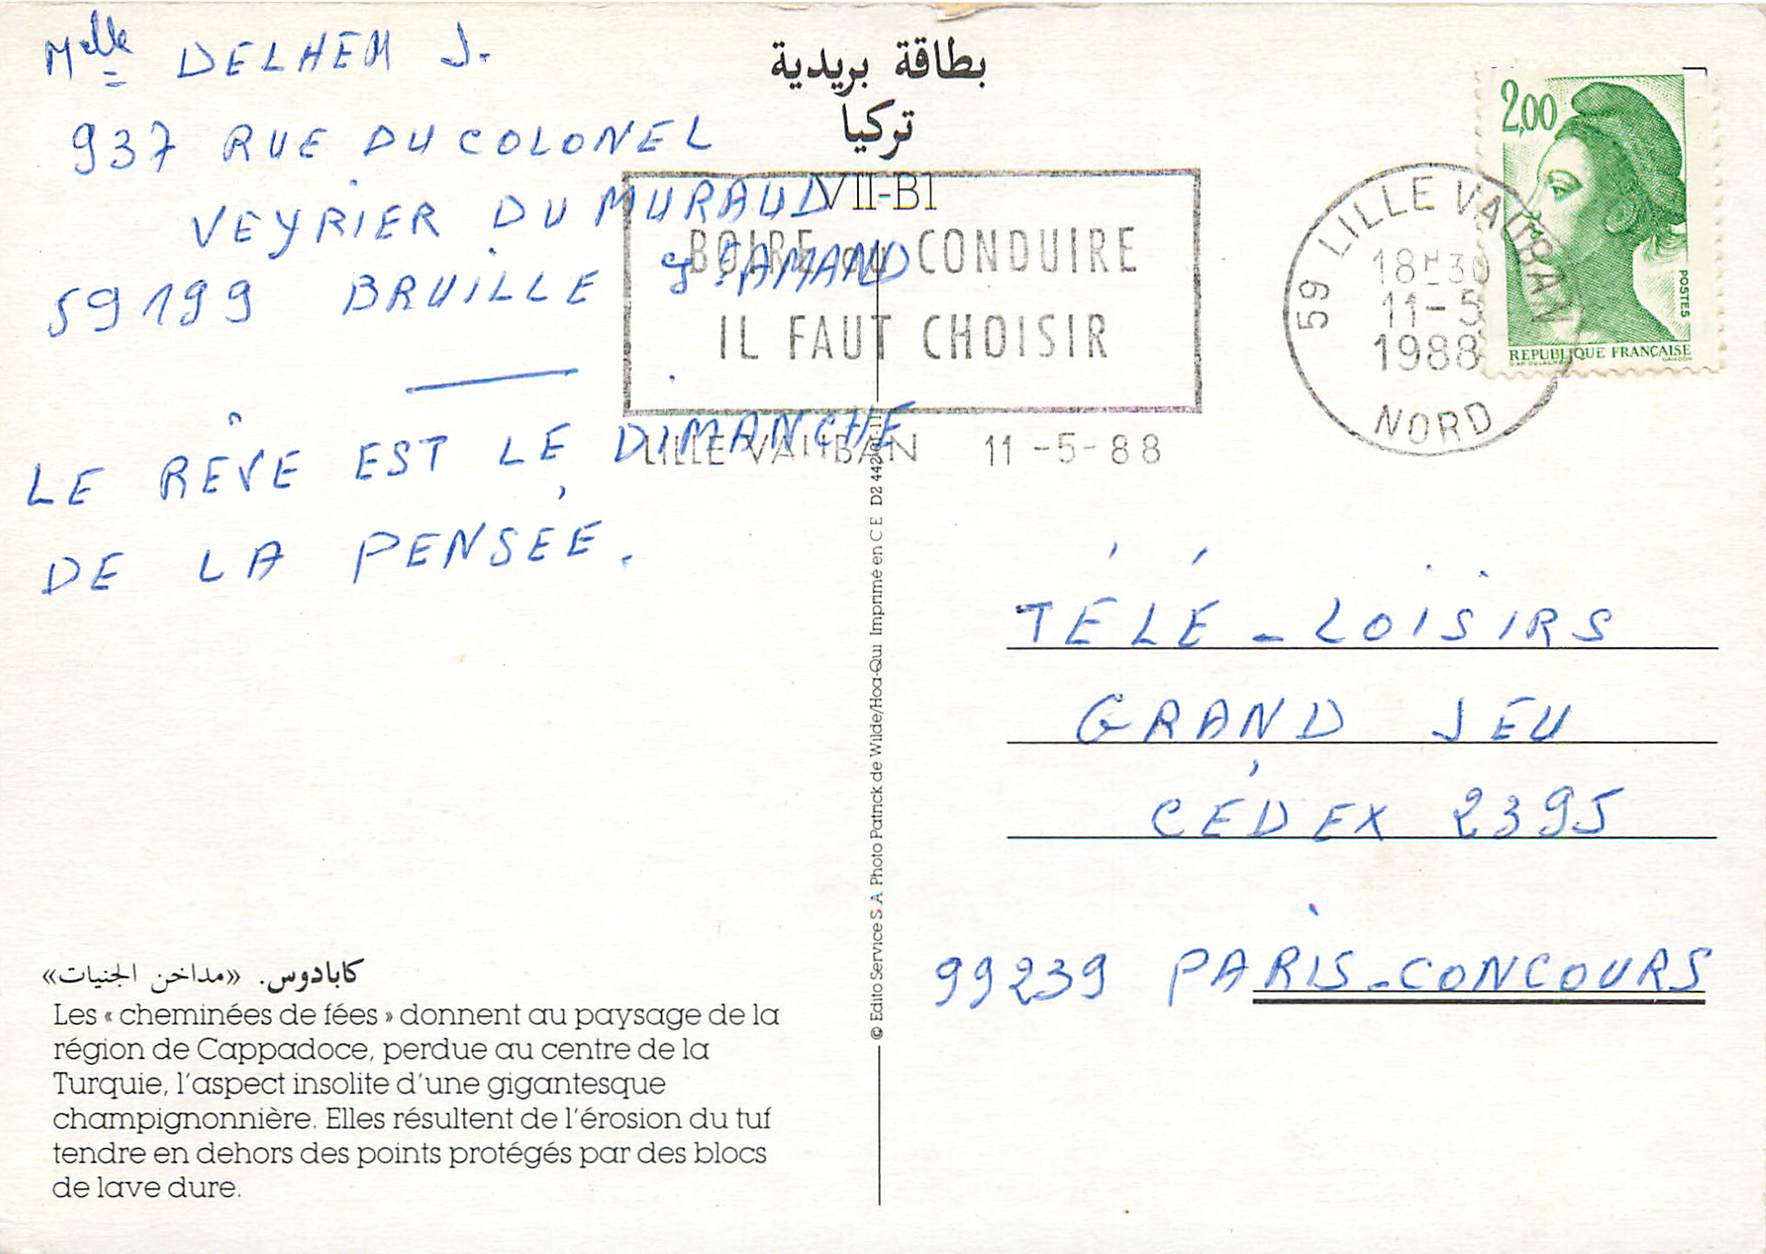 Melle DELHEM J.
937 RUE DU COLONEL
VEYRIER DU MURAUD
59199 BRUILLE St. AMAND
LE RÊVE EST LE DIMANCHE
DE LA PENSÉE.
بطاقة بريدية
تركيا
VII-B1
BOIRE OU CONDUIRE
IL FAUT CHOISIR
LILLE VAUBAN 11-5-88
59 LILLE VAUBAN
18H30
11-5
1988
NORD
2,00
POSTES
REPUBLIQUE FRANÇAISE
TÉLÉ-LOISIRS
GRAND JEU
CÉDEX 2395
99239 PARIS-CONCOURS
© Edito Service S.A. Photo Patrick de Wilde/Hoa-Qui Imprimé en C E D2 442
كابادوس. «مداخن الجنيات»
Les « cheminées de fées » donnent au paysage de la
région de Cappadoce, perdue au centre de la
Turquie, l'aspect insolite d'une gigantesque
champignonnière. Elles résultent de l'érosion du tuf
tendre en dehors des points protégés par des blocs
de lave dure.